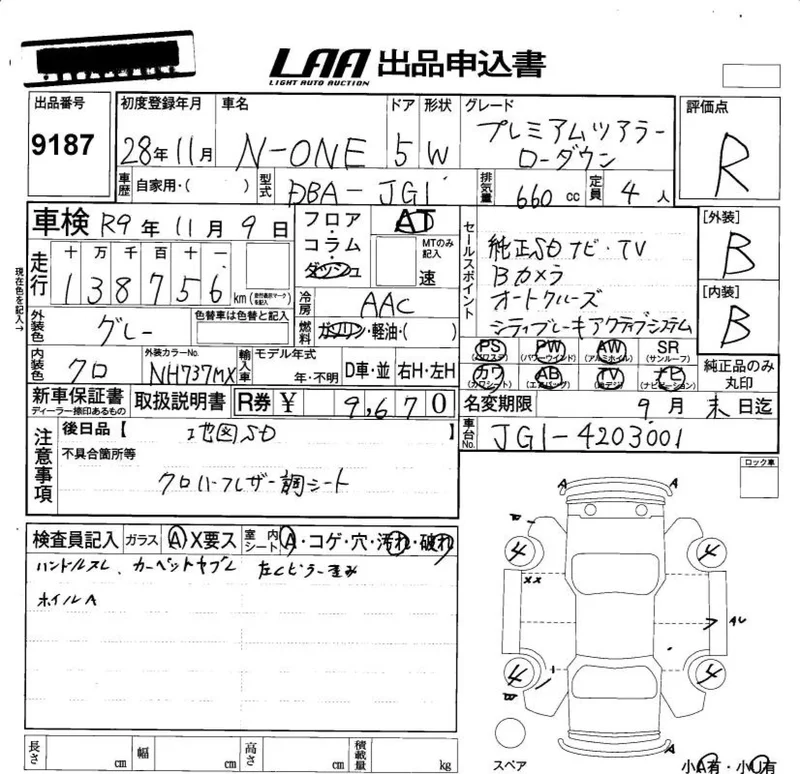 LAA 出品申込書
LIGHT AUTO AUCTION
出品番号 9187
初度登録年月 28年11月
車名 N-ONE
ドア 5
形状 W
グレード プレミアムツアラー
ローダウン
評価点 R
車歴 自家用・( )
型式 DBA-JG1
排気量 660cc
定員 4人
車検 R9年11月9日
フロア・コラム・ダッシュ
AT
MTのみ記入 速
セールスポイント
純正SDナビ・TV
Bカメラ
オートクルーズ
シティブレーキアクティブシステム
[外装] B
[内装] B
現在色を記入→
走行 十万千百十一
138756km (走行表示マークを記入)
冷房 AAC
燃料 ガソリン・軽油・( )
外装色 グレー
色替車は色替と記入
内装色 クロ
外装カラーNo. NH737MX
輸入車 モデル年式 年・不明
D車・並 右H・左H
PS (パワステ) PW (パワーウインド) AW (アルミホイル) SR (サンルーフ)
カワ (カワシート) AB (エアバッグ) TV (地デジ) ナビ (ナビゲーション)
純正品のみ丸印
新車保証書
ディーラー捺印あるもの
取扱説明書
R券 ¥ 9,670
名変期限 9月末日迄
車台No. JG1-4203001
注意事項
後日品【 地図SD 】
不具合箇所等
クロハーフレザー調シート
ロック車
検査員記入 ガラス A X要ス
室内シート A・コゲ・穴・汚れ・破れ
ハンドルスレ、カーペットヤブレ
ホイルA
A A
W
4 4
XX
AU
4 4
W
A
スペア
小A有・小U有
長さ cm 幅 cm 高さ cm 積載量 kg